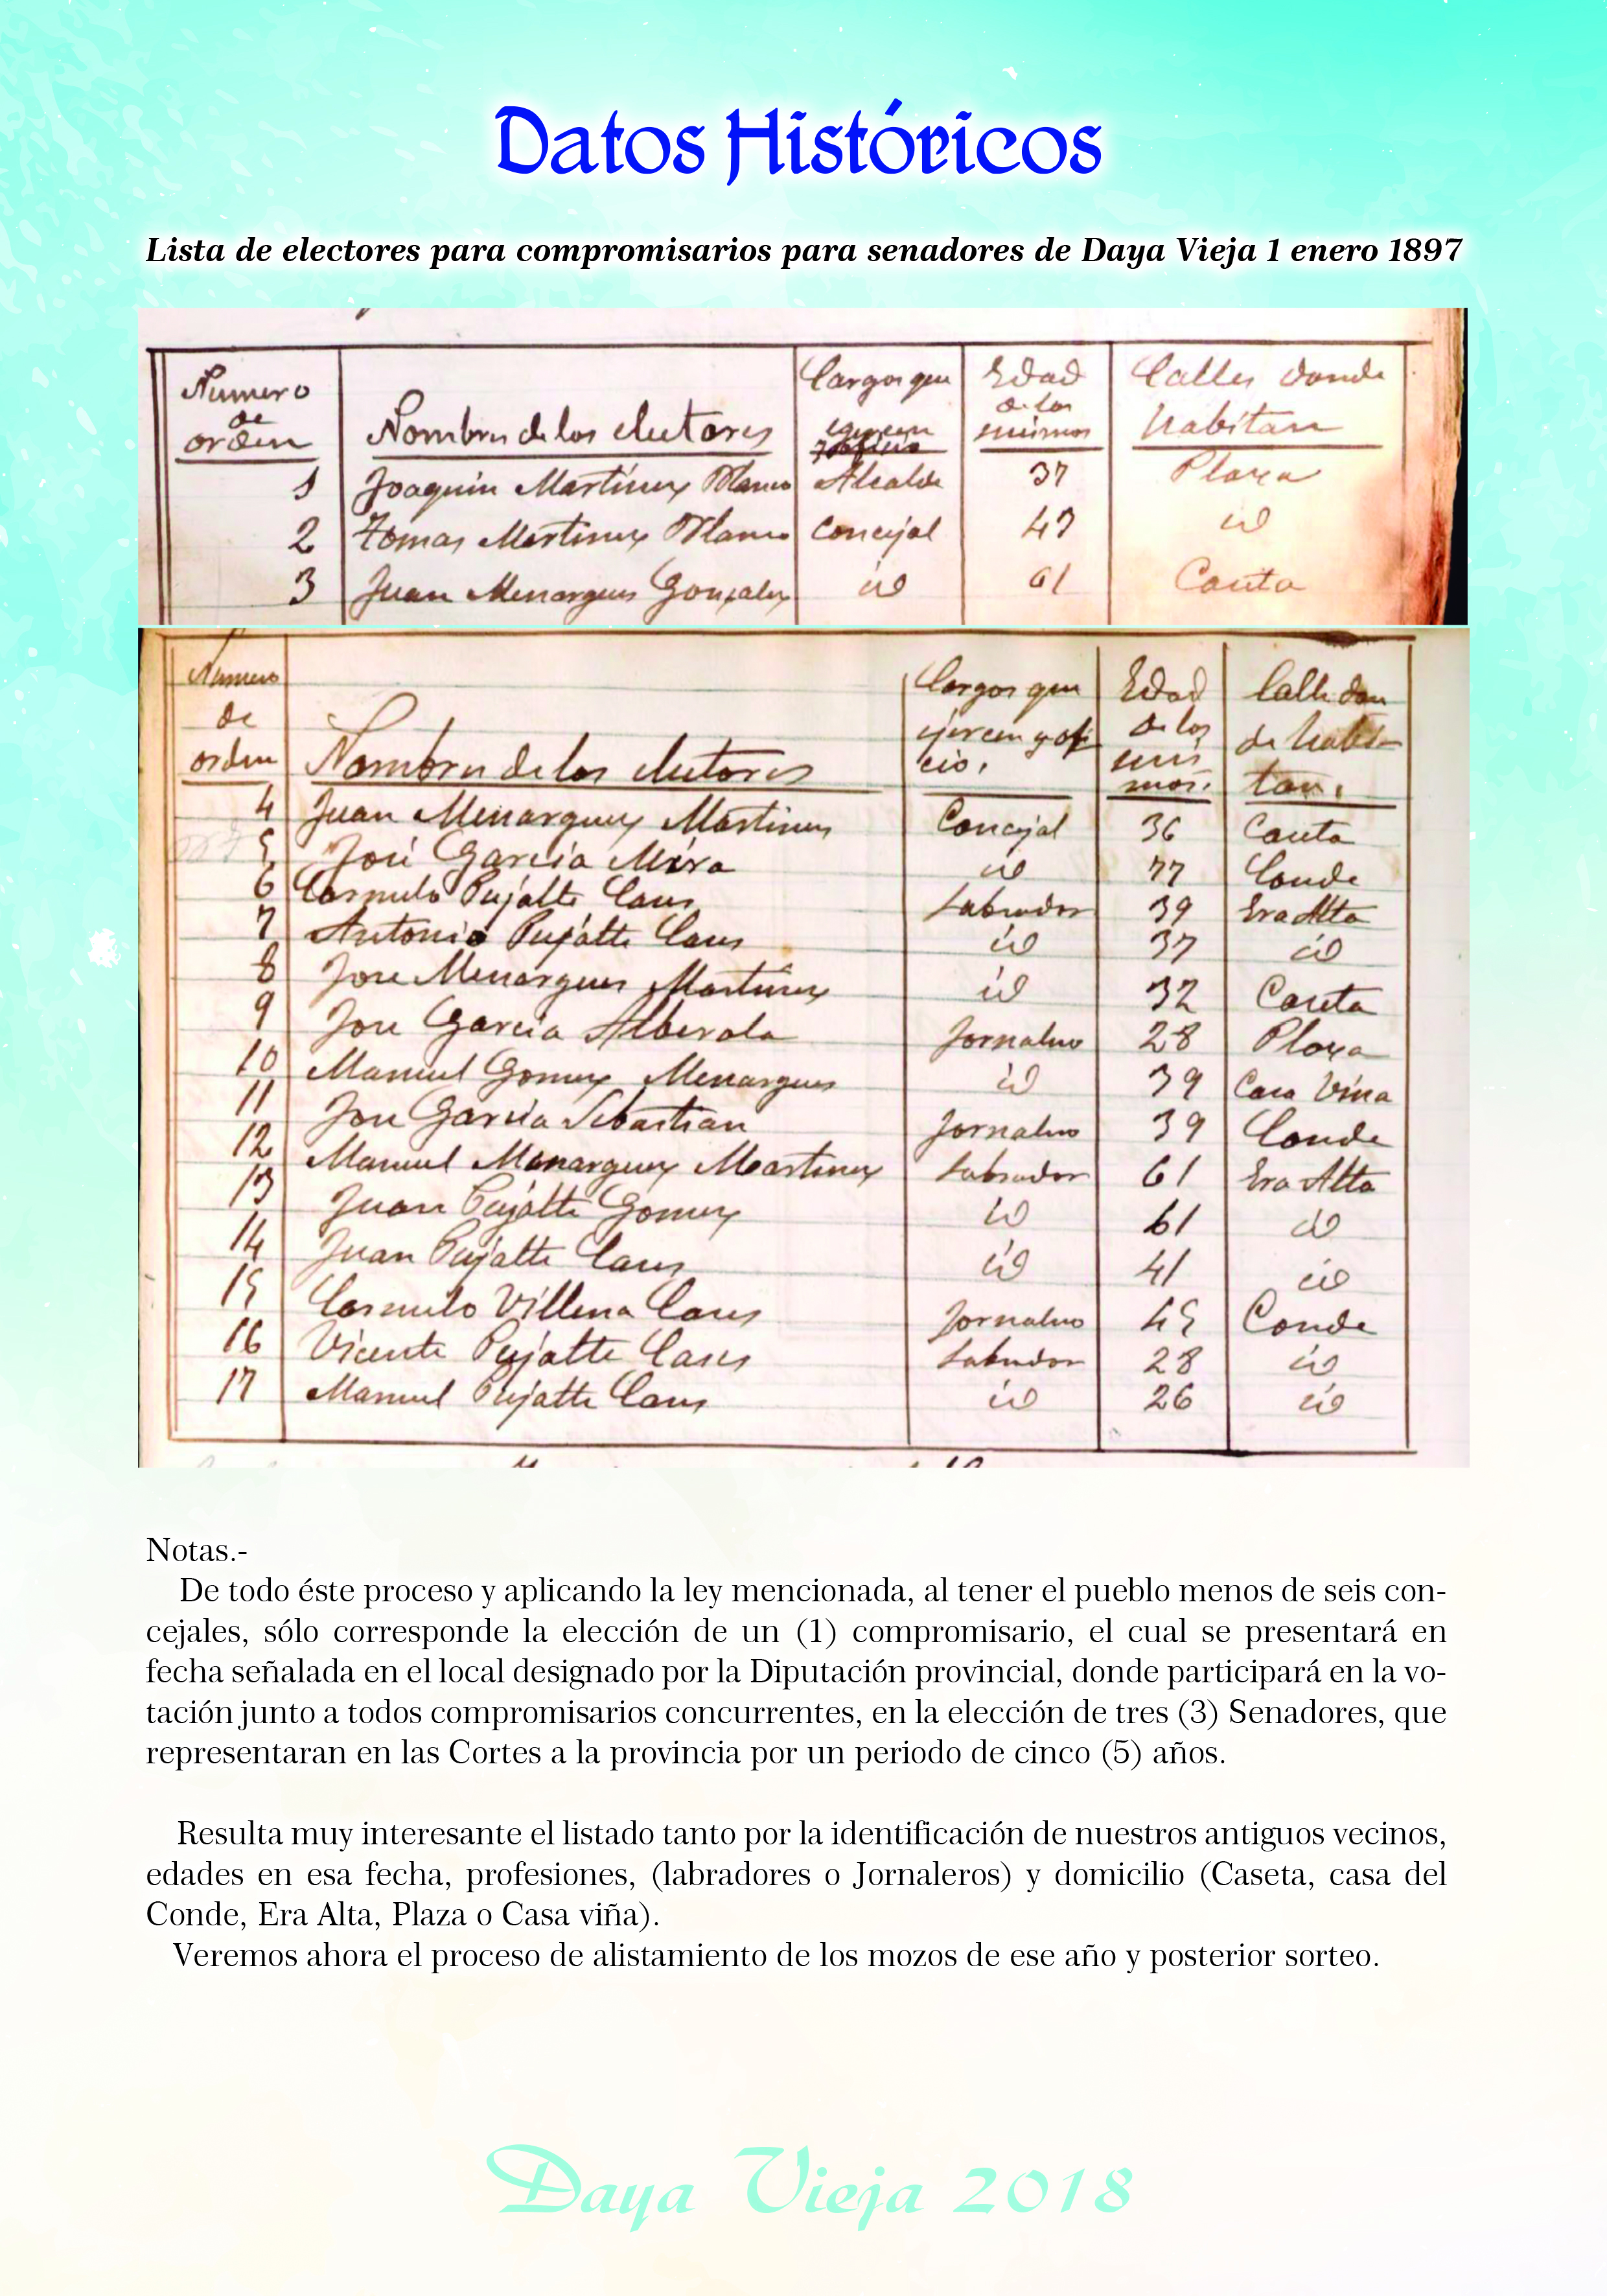 Datos Históricos
Lista de electores para compromisarios para senadores de Daya Vieja 1 enero 1897
Numero de orden Nombres de los electores Cargos que egercen Edad de los mismos Calles donde habitan
1 Joaquin Martinez Blanco Alcalde 37 Plaza
2 Tomas Martinez Blanco Concejal 47 id
3 Juan Menargues Gonzalez id 61 Caseta
Numero de orden Nombres de los electores Cargos que ejercen y oficio. Edad de los mismos. Calle donde habitan.
4 Juan Menarguez Martinez Concejal 36 Caseta
5 José Garcia Mira id 77 Conde
6 Carmelo Pujalte Cases Labrador 39 Era Alta
7 Antonio Pujalte Cases id 37 id
8 Jose Menargues Martinez id 32 Caseta
9 Jose Garcia Alberola Jornalero 28 Plaza
10 Manuel Gomez Menargues id 39 Casa Viña
11 Jose Garcia Sebastian Jornalero 39 Conde
12 Manuel Menarguez Martinez Labrador 61 Era Alta
13 Juan Pujalte Gomez id 61 id
14 Juan Pujalte Cases id 41 id
15 Carmelo Villena Cases Jornalero 45 Conde
16 Vicente Pujalte Cases Labrador 28 id
17 Manuel Pujalte Cases id 26 id
Notas.-
De todo éste proceso y aplicando la ley mencionada, al tener el pueblo menos de seis con-
cejales, sólo corresponde la elección de un (1) compromisario, el cual se presentará en
fecha señalada en el local designado por la Diputación provincial, donde participará en la vo-
tación junto a todos compromisarios concurrentes, en la elección de tres (3) Senadores, que
representaran en las Cortes a la provincia por un periodo de cinco (5) años.
Resulta muy interesante el listado tanto por la identificación de nuestros antiguos vecinos,
edades en esa fecha, profesiones, (labradores o Jornaleros) y domicilio (Caseta, casa del
Conde, Era Alta, Plaza o Casa viña).
Veremos ahora el proceso de alistamiento de los mozos de ese año y posterior sorteo.
Daya Vieja 2018